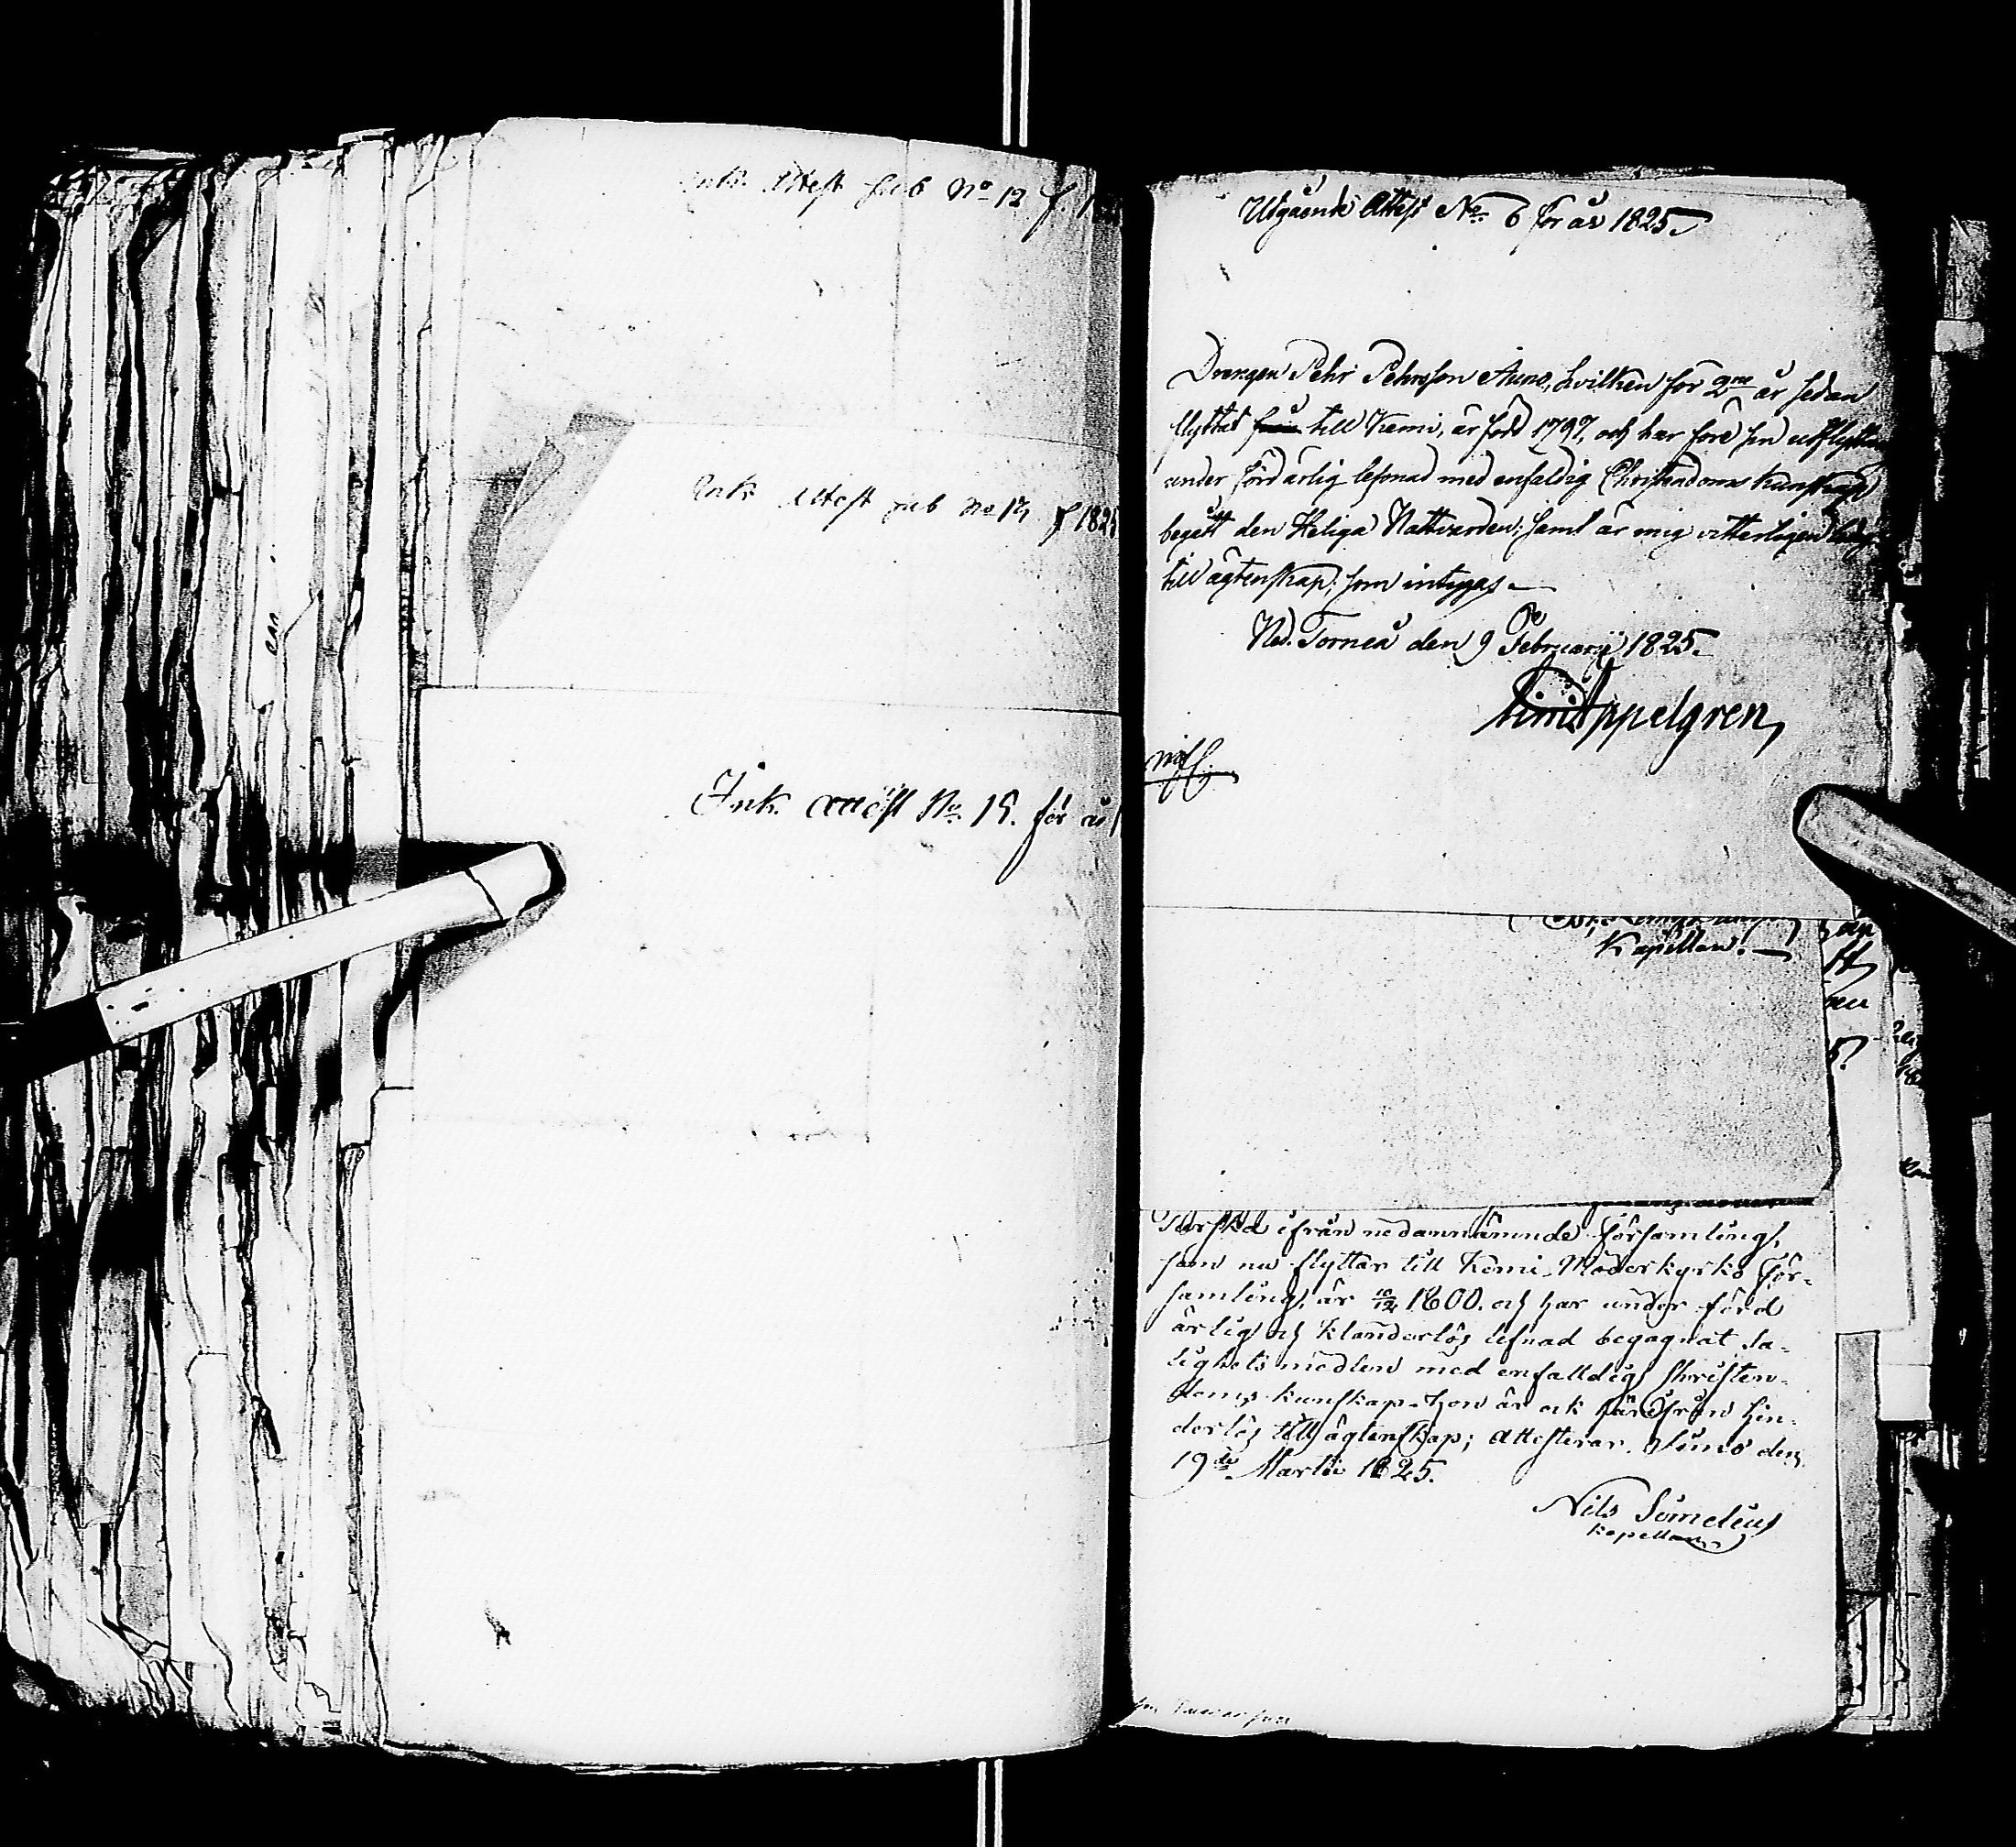 Ink. Attest sub No 12 f. 1
Ink. Attest sub No 14 f 1825
Ink. attest No. 15. för år 1
Utgående Attest No. 6 för år 1825.
Drengen Pehr Pehrsson Auno, hvilken för 2ne år sedan
flyttat från till Kemi, är född 1797, och har före sin utflyttn
under förd ärlig lefnad med enfaldig Christendoms kunskap
begått den Heliga Nattvarden; samt är mig vitterligen ledig
till ägtenskap; som intygas.
Ned. Torneå den 9 Februarii 1825.
Appelgren
Kapellan.
ifrån nedannämnde församling,
som nu flyttar till Kemi Moderkyrko För-
samling, är 10/12 1800. och har under förd
ärlig och klanderlös lefnad begagnat Sa-
lighets medlen med enfalldig Christen-
doms kunskap. Hon är ock härifrån hin-
derlös till ägtenskap; attesterar. Simo den
19de Martii 1825.
Nils Sumelius
Kapellan